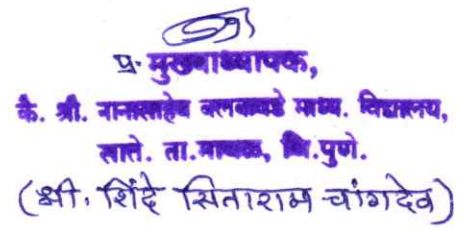 प्र. मुख्याध्यापक,
कै. श्री. नानासाहेब बलकवडे माध्य. विद्यालय,
साते. ता.मावळ, जि.पुणे.
(श्री. शिंदे सिताराम चांगदेव)